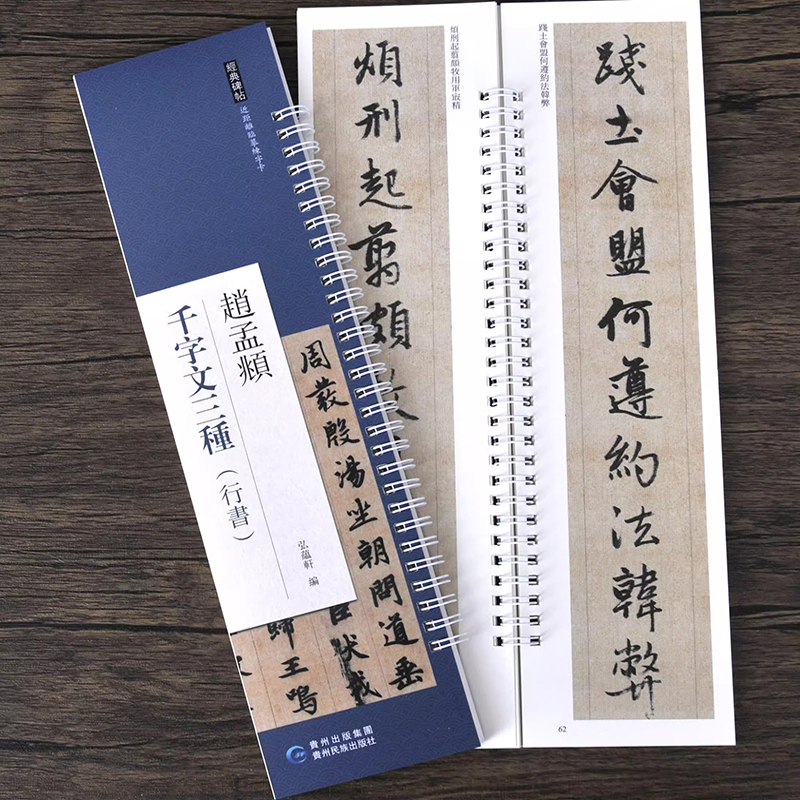 經典碑帖
近距離臨摹練字卡
趙孟頫
千字文三種（行書）
弘蘊軒 編
周發殷湯坐朝問道垂
臣伏戎
歸王鳴
貴州出版集團
貴州民族出版社
煩刑起翦頗牧用軍最精
煩刑起翦頗
踐土會盟何遵約法韓弊
踐土會盟何遵約法韓弊
62